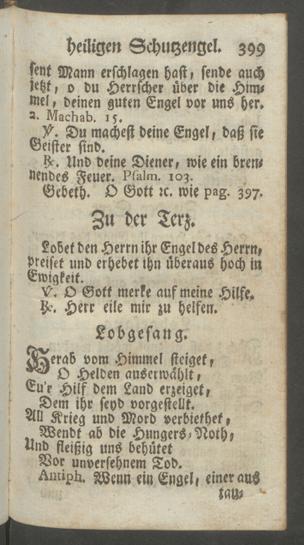 heiligen Schutzengel. 399
sent Mann erschlagen hast, sende auch
jetzt, o du Herrscher über die Him-
mel, deinen guten Engel vor uns her.
2. Machab. 15.
℣. Du machest deine Engel, daß sie
Geister sind.
℟. Und deine Diener, wie ein bren-
nendes Feuer. Psalm. 103.
Gebeth. O Gott ꝛc. wie pag. 397.
Zu der Terz.
Lobet den Herrn ihr Engel des Herrn,
preiset und erhebet ihn überaus hoch in
Ewigkeit.
℣. O Gott merke auf meine Hilfe.
℟. Herr eile mir zu helfen.
Lobgesang.
Herab vom Himmel steiget,
O Helden auserwählt,
Eu'r Hilf dem Land erzeiget,
Dem ihr seyd vorgestellt.
All Krieg und Mord verbiethet,
Wendt ab die Hungers-Noth,
Und fleißig uns behütet
Vor unversehnem Tod.
Antiph. Wenn ein Engel, einer aus
tau-